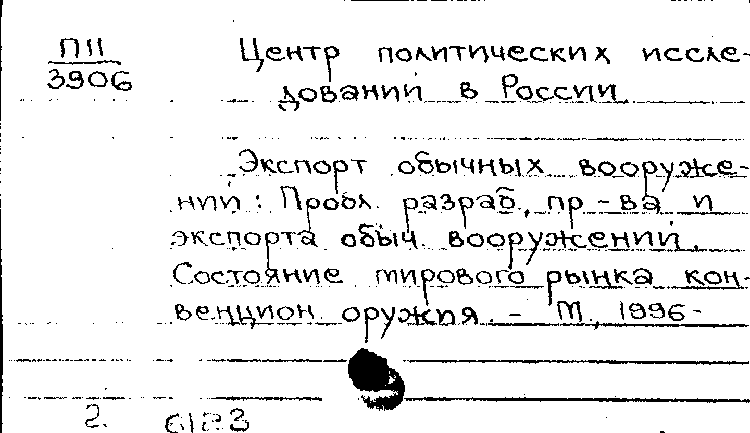 П11
3906
Центр политических иссле-
дований в России
Экспорт обычных вооруже-
ний: Пробл. разраб., пр-ва и
экспорта обыч. вооружений.
Состояние мирового рынка кон-
венцион. оружия. - М., 1996-
2. 6123